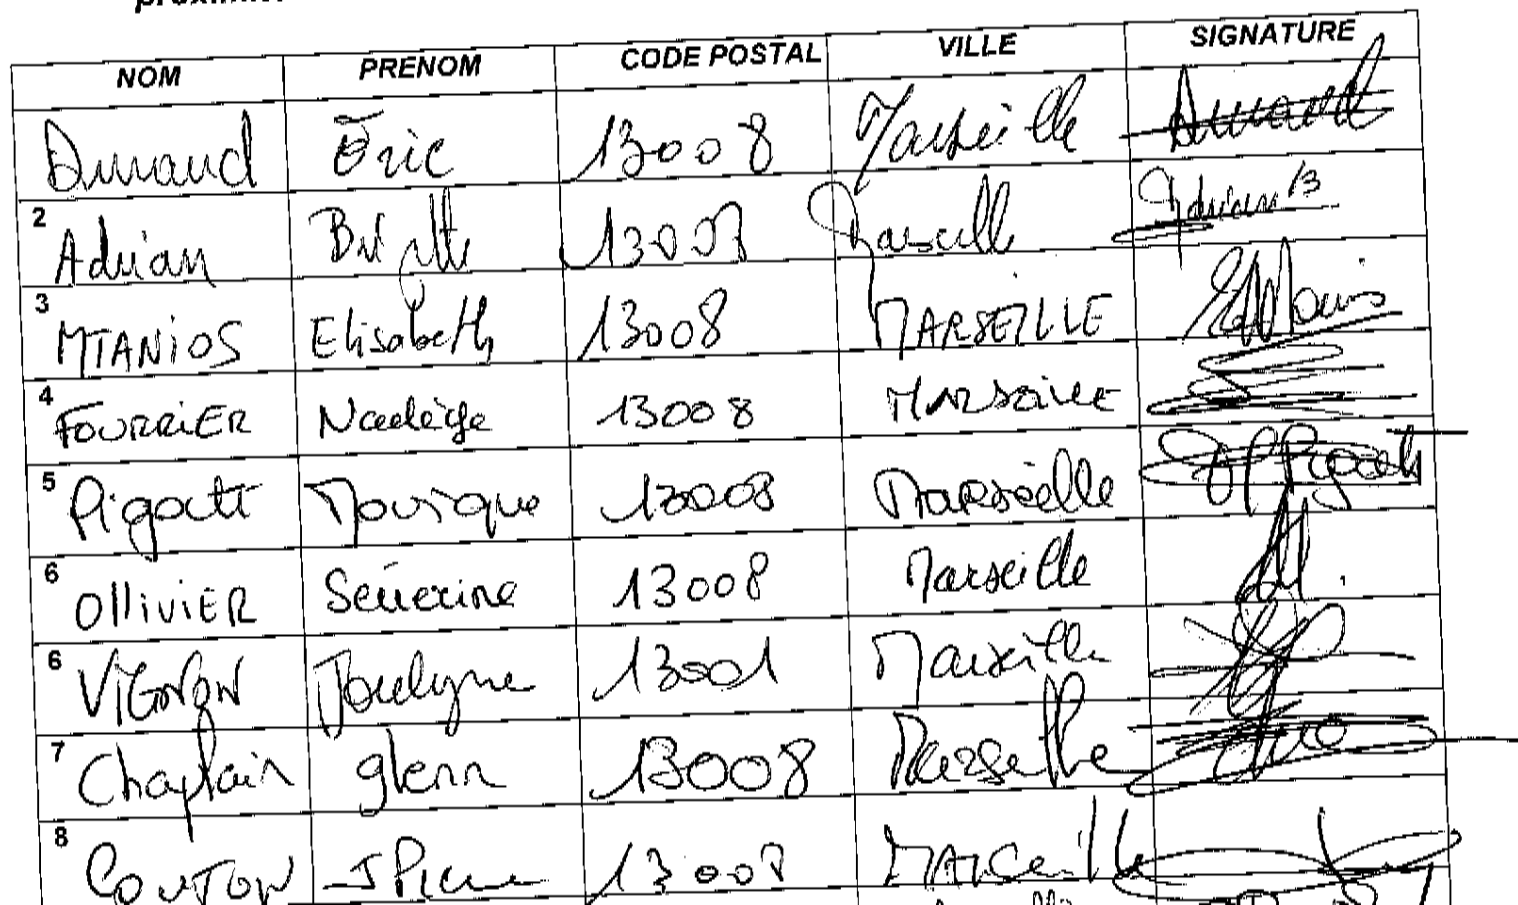 NOM PRENOM CODE POSTAL VILLE SIGNATURE
Durand Éric 13008 Marseille Durand
2 Adrian Brigitte 13008 Marseille Adrian B
3 MTANIOS Elisabeth 13008 MARSEILLE
4 FOURRIER Nadège 13008 Marseille
5 Pigatti Monique 13008 Marseille
6 OlliviER Séverine 13008 Marseille
6 VIGNON Jocelyne 13001 Marseille
7 Chaplain glenn 13008 Marseille
8 COUTON JPierre 13008 MARSeille